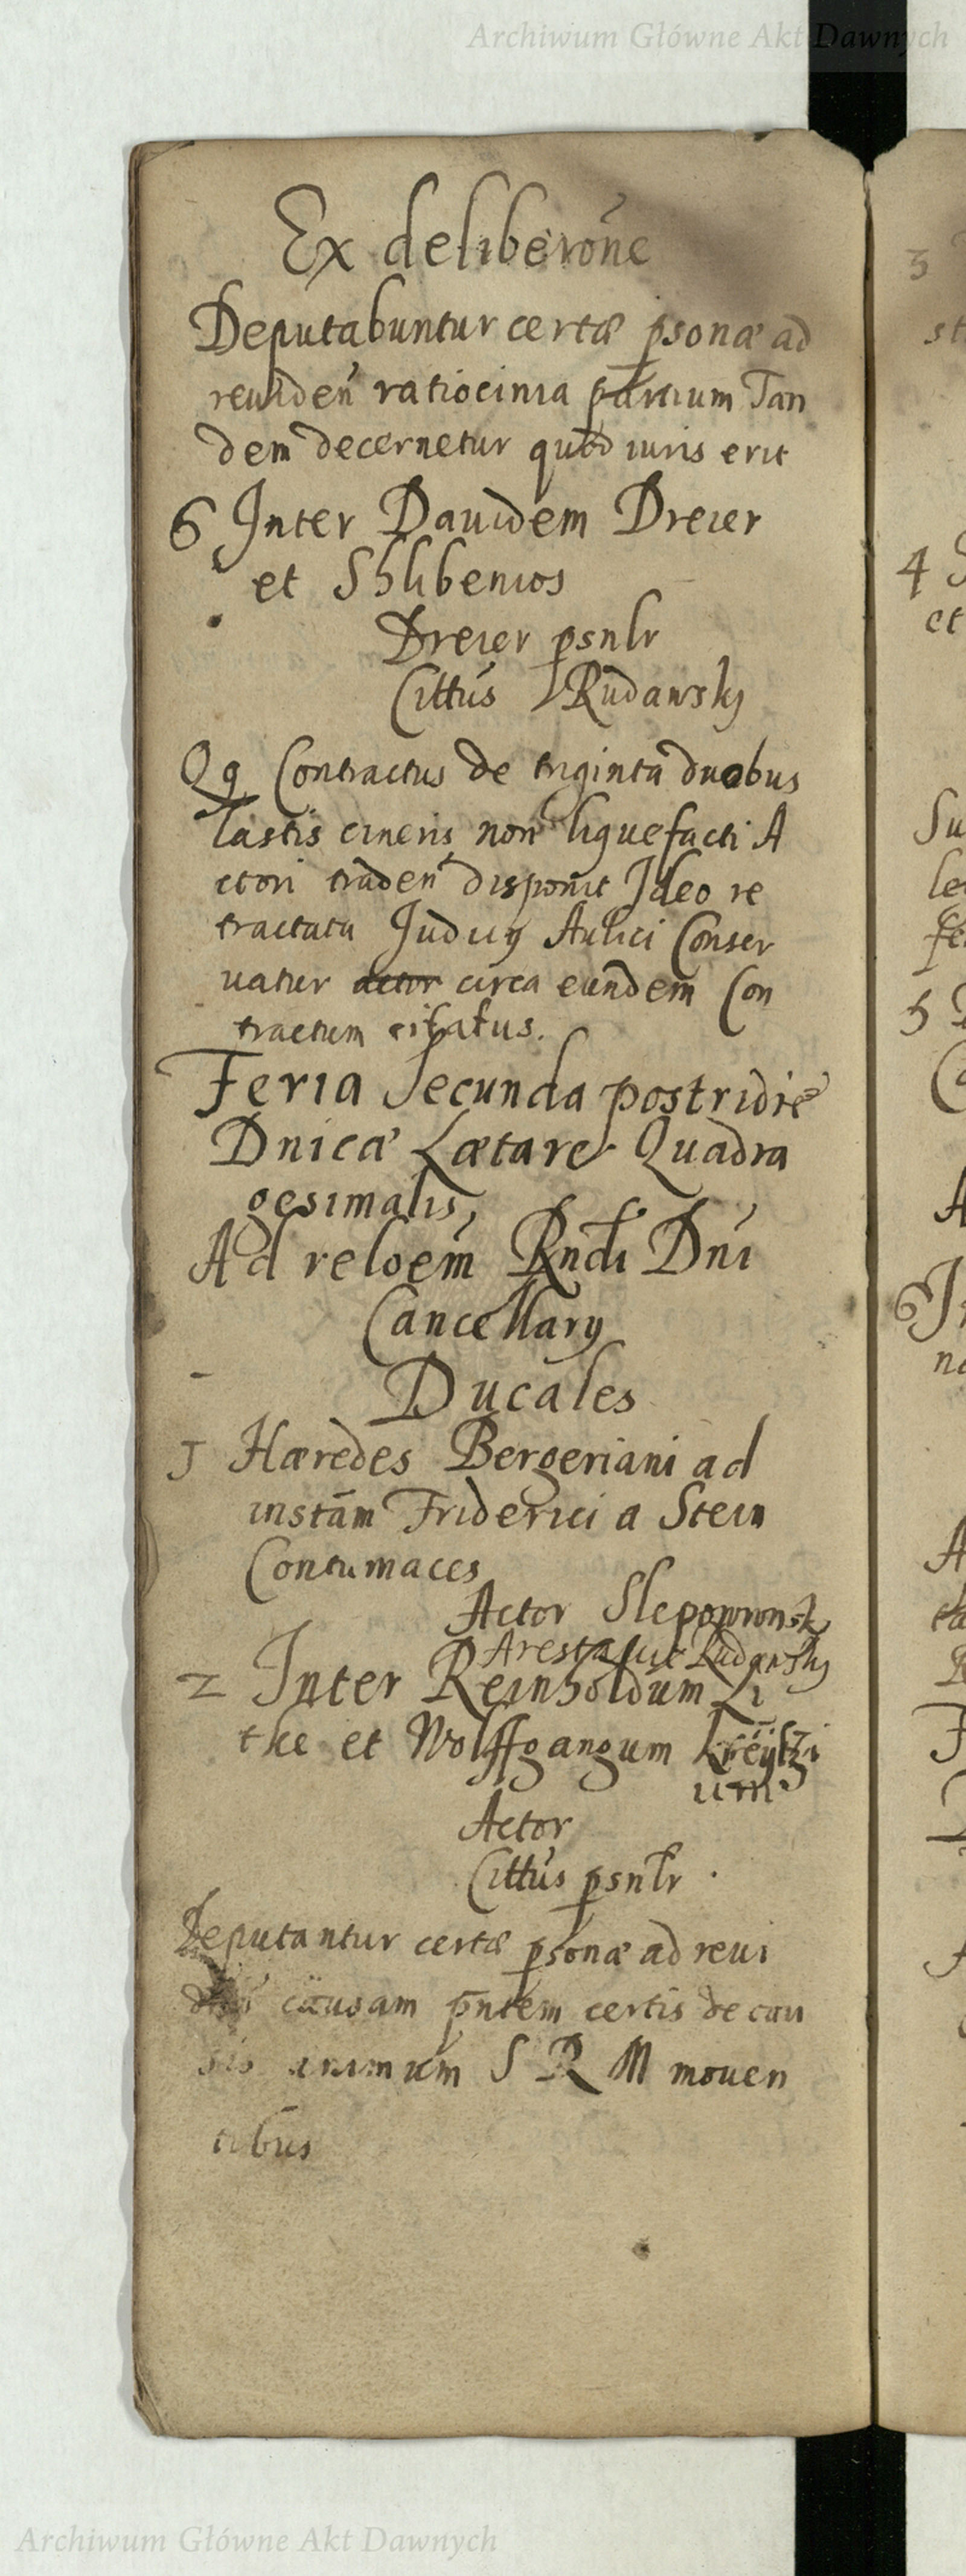 Archiwum Główne Akt Dawnych
Ex deliberōne
Deputabuntur certæ psonæ ad
reuiden̄ ratiocinia partium Tan
dem decernetur quod iuris erit
6 Inter Dauidem Dreier
et Shlibenios
Dreier psnlr
Cittus Rudawskÿ
Qq Contractus de triginta duobus
lastis cineris non liquefacti A
ctori traden̄ disponit Ideo re
tractatu Judicÿ Aulici Conser
uatur actor circa eundem Con
tractum citatus.
Feria Secunda postridie
Dnicæ Lætare Quadra
gesimalis,
Ad reloem Rndi Dni
Cancellarÿ
Ducales
1 Hæredes Bergeriani ad
instām Friderici a Stein
Contumaces
Actor Slepowronsk
Arestatur Rudawskÿ
2 Inter Reinholdum Li
tke et Wolffgangum Kreÿtzi
um
Actor
Cittus psnlr
Deputantur certæ psonæ ad reui
causam pntem certis de cau
sis animum S R M mouen
tibus
3
st
4
et
Su
5
A
6
A
Archiwum Główne Akt Dawnych